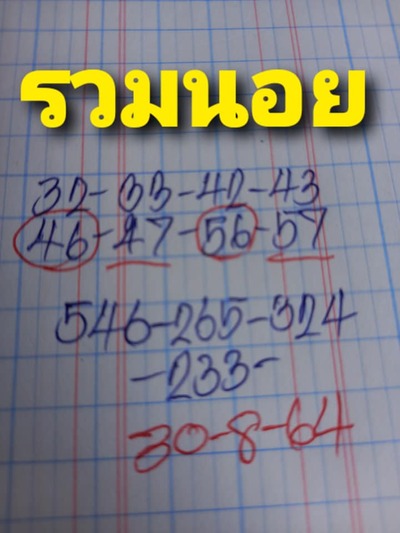 รวมนอย
32-33-42-43
46-47-56-57
546-265-324
-233-
30-8-64